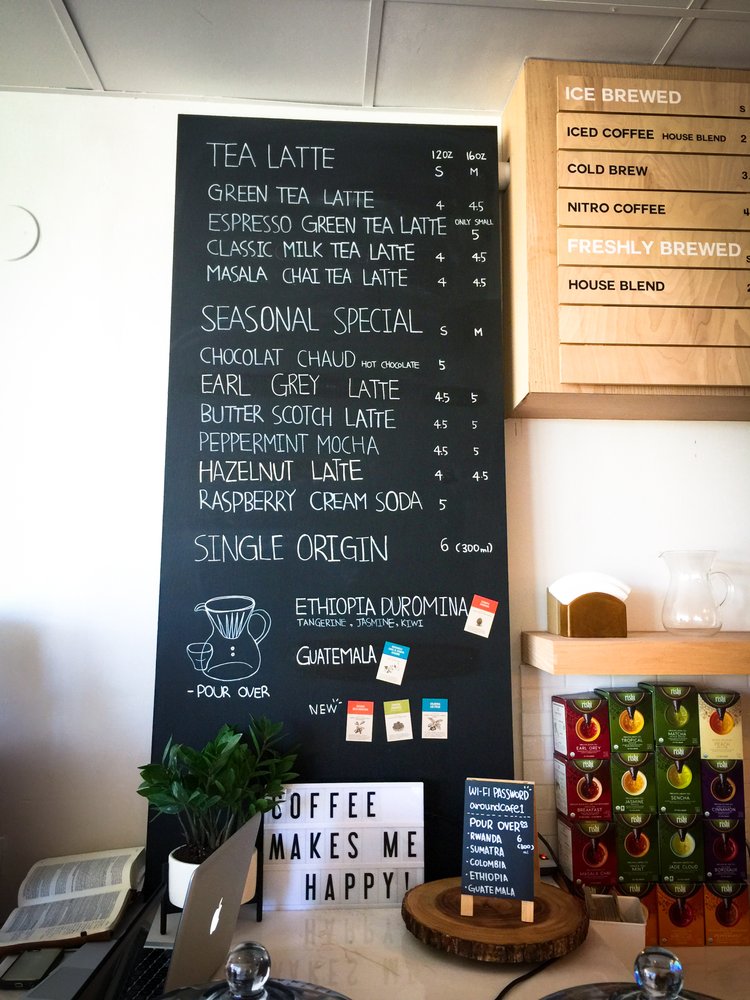 TEA LATTE 12OZ 16OZ
S M
GREEN TEA LATTE 4 4.5
ESPRESSO GREEN TEA LATTE ONLY SMALL
5
CLASSIC MILK TEA LATTE 4 4.5
MASALA CHAI TEA LATTE 4 4.5
SEASONAL SPECIAL S M
CHOCOLAT CHAUD HOT CHOCOLATE 5
EARL GREY LATTE 4.5 5
BUTTER SCOTCH LATTE 4.5 5
PEPPERMINT MOCHA 4.5 5
HAZELNUT LATTE 4 4.5
RASPBERRY CREAM SODA 5
SINGLE ORIGIN 6 (300ml)
ETHIOPIA DUROMINA
TANGERINE, JASMINE, KIWI
GUATEMALA
-POUR OVER
NEW
ICE BREWED
S
ICED COFFEE HOUSE BLEND 2
COLD BREW 3.
NITRO COFFEE 4
FRESHLY BREWED
S
HOUSE BLEND 2
COFFEE
MAKES ME
HAPPY!
WI-FI PASSWORD
aroundcafe1
POUR OVER
·RWANDA 6
·SUMATRA
·COLOMBIA
·ETHIOPIA
·GUATEMALA
rishi
EARL GREY
TROPICAL
MATCHA
PEACH
BREAKFAST
JASMINE
SENCHA
CINNAMON
MASALA CHAI
MINT
JADE CLOUD
BORDEAUX